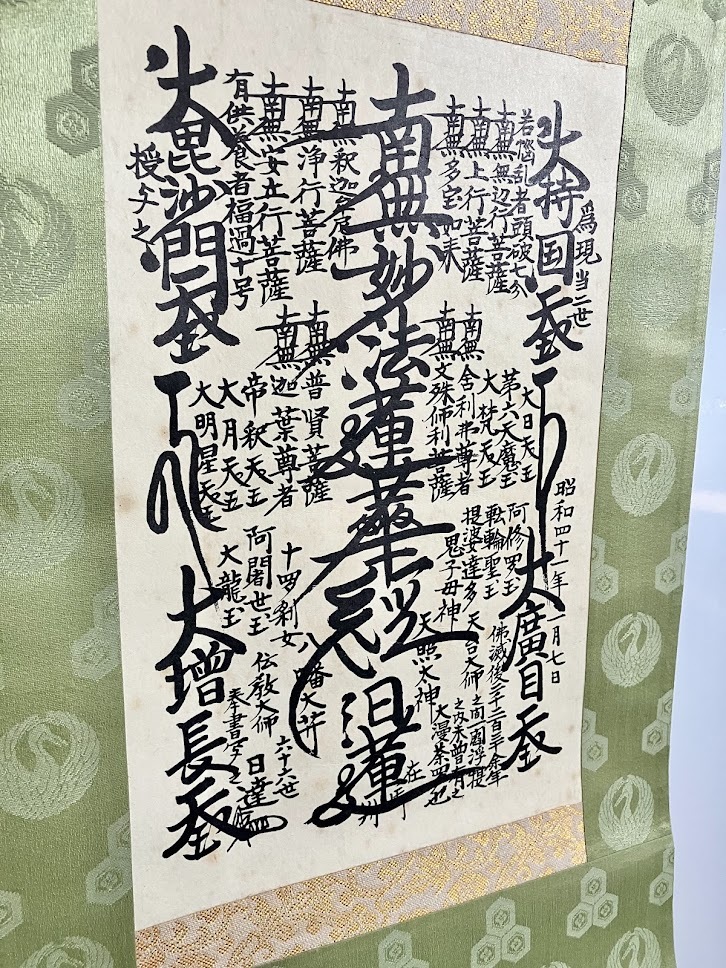 為現当二世
大持国天王
若悩乱者頭破七分
南無無辺行菩薩
南無上行菩薩
南無多宝如来
南無妙法蓮華経 日蓮
南無釈迦牟尼佛
南無浄行菩薩
南無安立行菩薩
有供養者福過十号
大毘沙門天王
授与之
大日天王
第六天魔王
大梵天王
南無舎利弗尊者
南無文殊師利菩薩
南無普賢菩薩
南無迦葉尊者
帝釈天王
大月天王
大明星天王
昭和四十一年一月七日
大廣目天王
阿修羅王
転輪聖王
提婆達多
鬼子母神
十羅刹女
阿闍世王
大龍王
佛滅後二千二百三十余年
之間一閻浮提
之内未曾有之
大漫荼羅也
天台大師
天照太神
在御判
八幡大菩薩
伝教大師
六十六世
日達
奉書写之
大増長天王